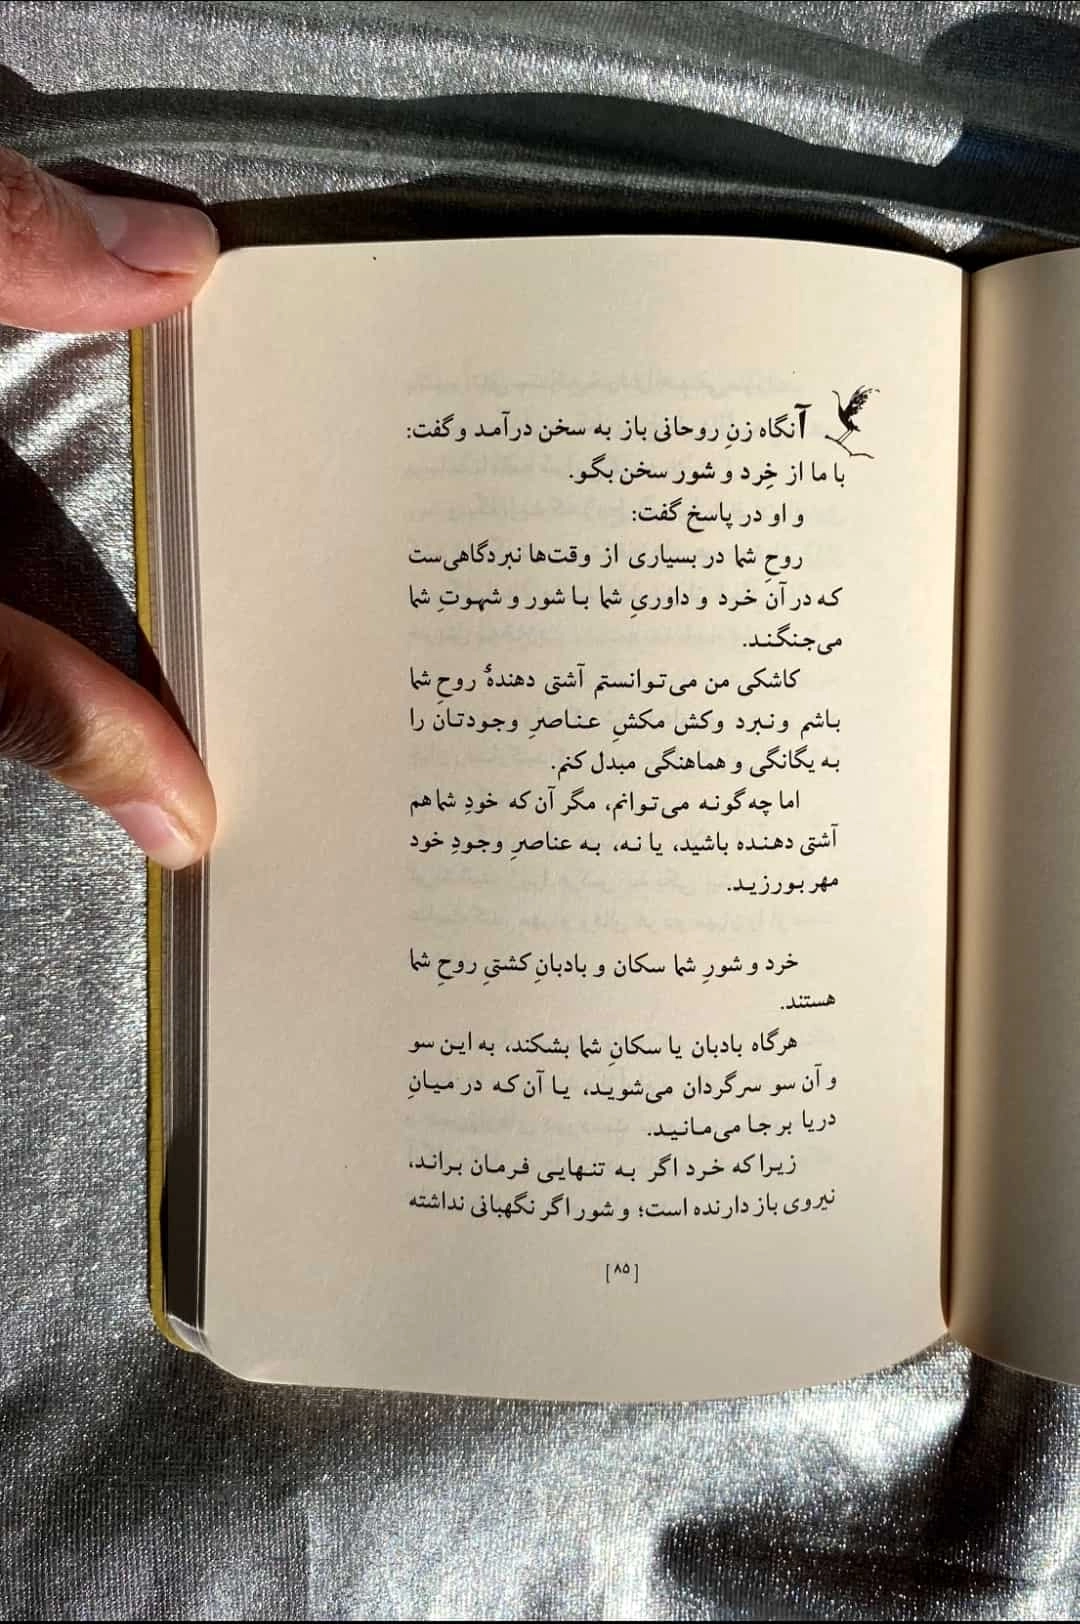 آنگاه زنِ روحانی باز به سخن درآمد و گفت:
با ما از خِرد و شور سخن بگو.
و او در پاسخ گفت:
روحِ شما در بسیاری از وقت‌ها نبردگاهی‌ست
که در آن خرد و داوریِ شما با شور و شهوتِ شما
می‌جنگند.
کاشکی من می‌توانستم آشتی دهندهٔ روحِ شما
باشم و نبرد و کش مکشِ عناصرِ وجودتان را
به یگانگی و هماهنگی مبدل کنم.
اما چه‌گونه می‌توانم، مگر آن‌که خودِ شما هم
آشتی دهنده باشید، یا نه، به عناصرِ وجودِ خود
مهر بورزید.
خرد و شورِ شما سکان و بادبانِ کشتیِ روحِ شما
هستند.
هرگاه بادبان یا سکانِ شما بشکند، به این سو
و آن سو سرگردان می‌شوید، یا آن‌که در میانِ
دریا بر جا می‌مانید.
زیرا که خرد اگر به تنهایی فرمان براند،
نیروی باز دارنده است؛ و شور اگر نگهبانی نداشته
[۸۵]